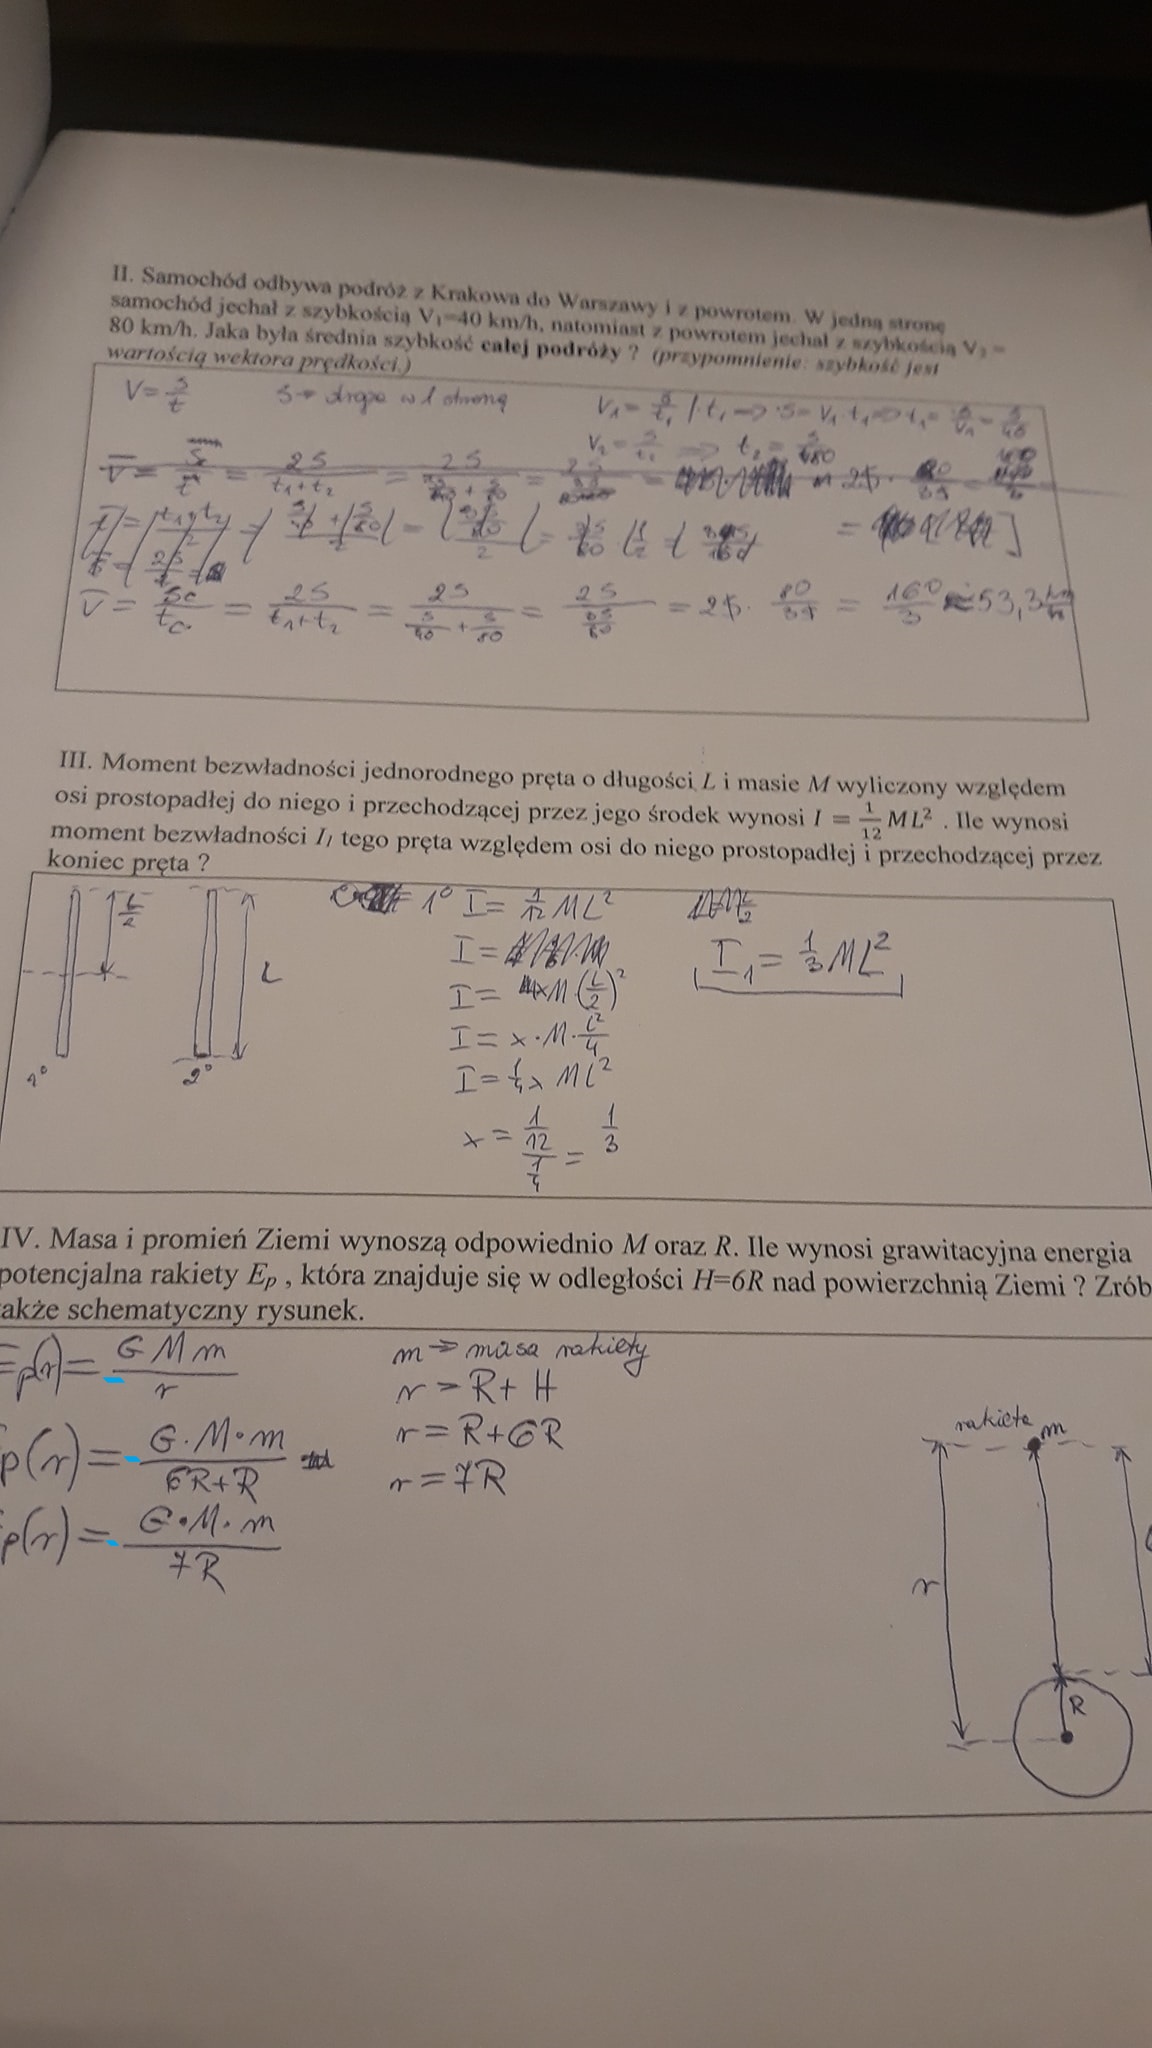 II. Samochód odbywa podróż z Krakowa do Warszawy i z powrotem. W jedną stronę
samochód jechał z szybkością V₁=40 km/h, natomiast z powrotem jechał z szybkością V₂ =
80 km/h. Jaka była średnia szybkość całej podróży ? (przypomnienie: szybkość jest
wartością wektora prędkości.)
V = s/t s → droga w 1 stronę V₁ = s/t₁ /·t₁ => s = V₁·t₁ => t₁ = s/V₁ = s/40
V₂ = s/t₂ => t₂ = s/80
V̄ = Sc/tc = 2s/(t₁+t₂) = 2s/(s/40 + s/80) = 2s/(3s/80) = 2s · 80/3s = 160/3 ≈ 53,3 km/h
III. Moment bezwładności jednorodnego pręta o długości L i masie M wyliczony względem
osi prostopadłej do niego i przechodzącej przez jego środek wynosi I = 1/12 ML² . Ile wynosi
moment bezwładności I₁ tego pręta względem osi do niego prostopadłej i przechodzącej przez
koniec pręta ?
L/2 L 1° I = 1/12 ML²
I = x M (L/2)² I₁ = 1/3 ML²
I = x · M · L²/4
I = 1/4 x ML²
1° 2°
x = (1/12)/(1/4) = 1/3
IV. Masa i promień Ziemi wynoszą odpowiednio M oraz R. Ile wynosi grawitacyjna energia
potencjalna rakiety Eₚ , która znajduje się w odległości H=6R nad powierzchnią Ziemi ? Zrób
także schematyczny rysunek.
p(r) = - GMm/r m → masa rakiety
r = R + H
p(r) = - G·M·m/(6R+R) r = R+6R
r = 7R
p(r) = - G·M·m/7R
rakieta m
r
R